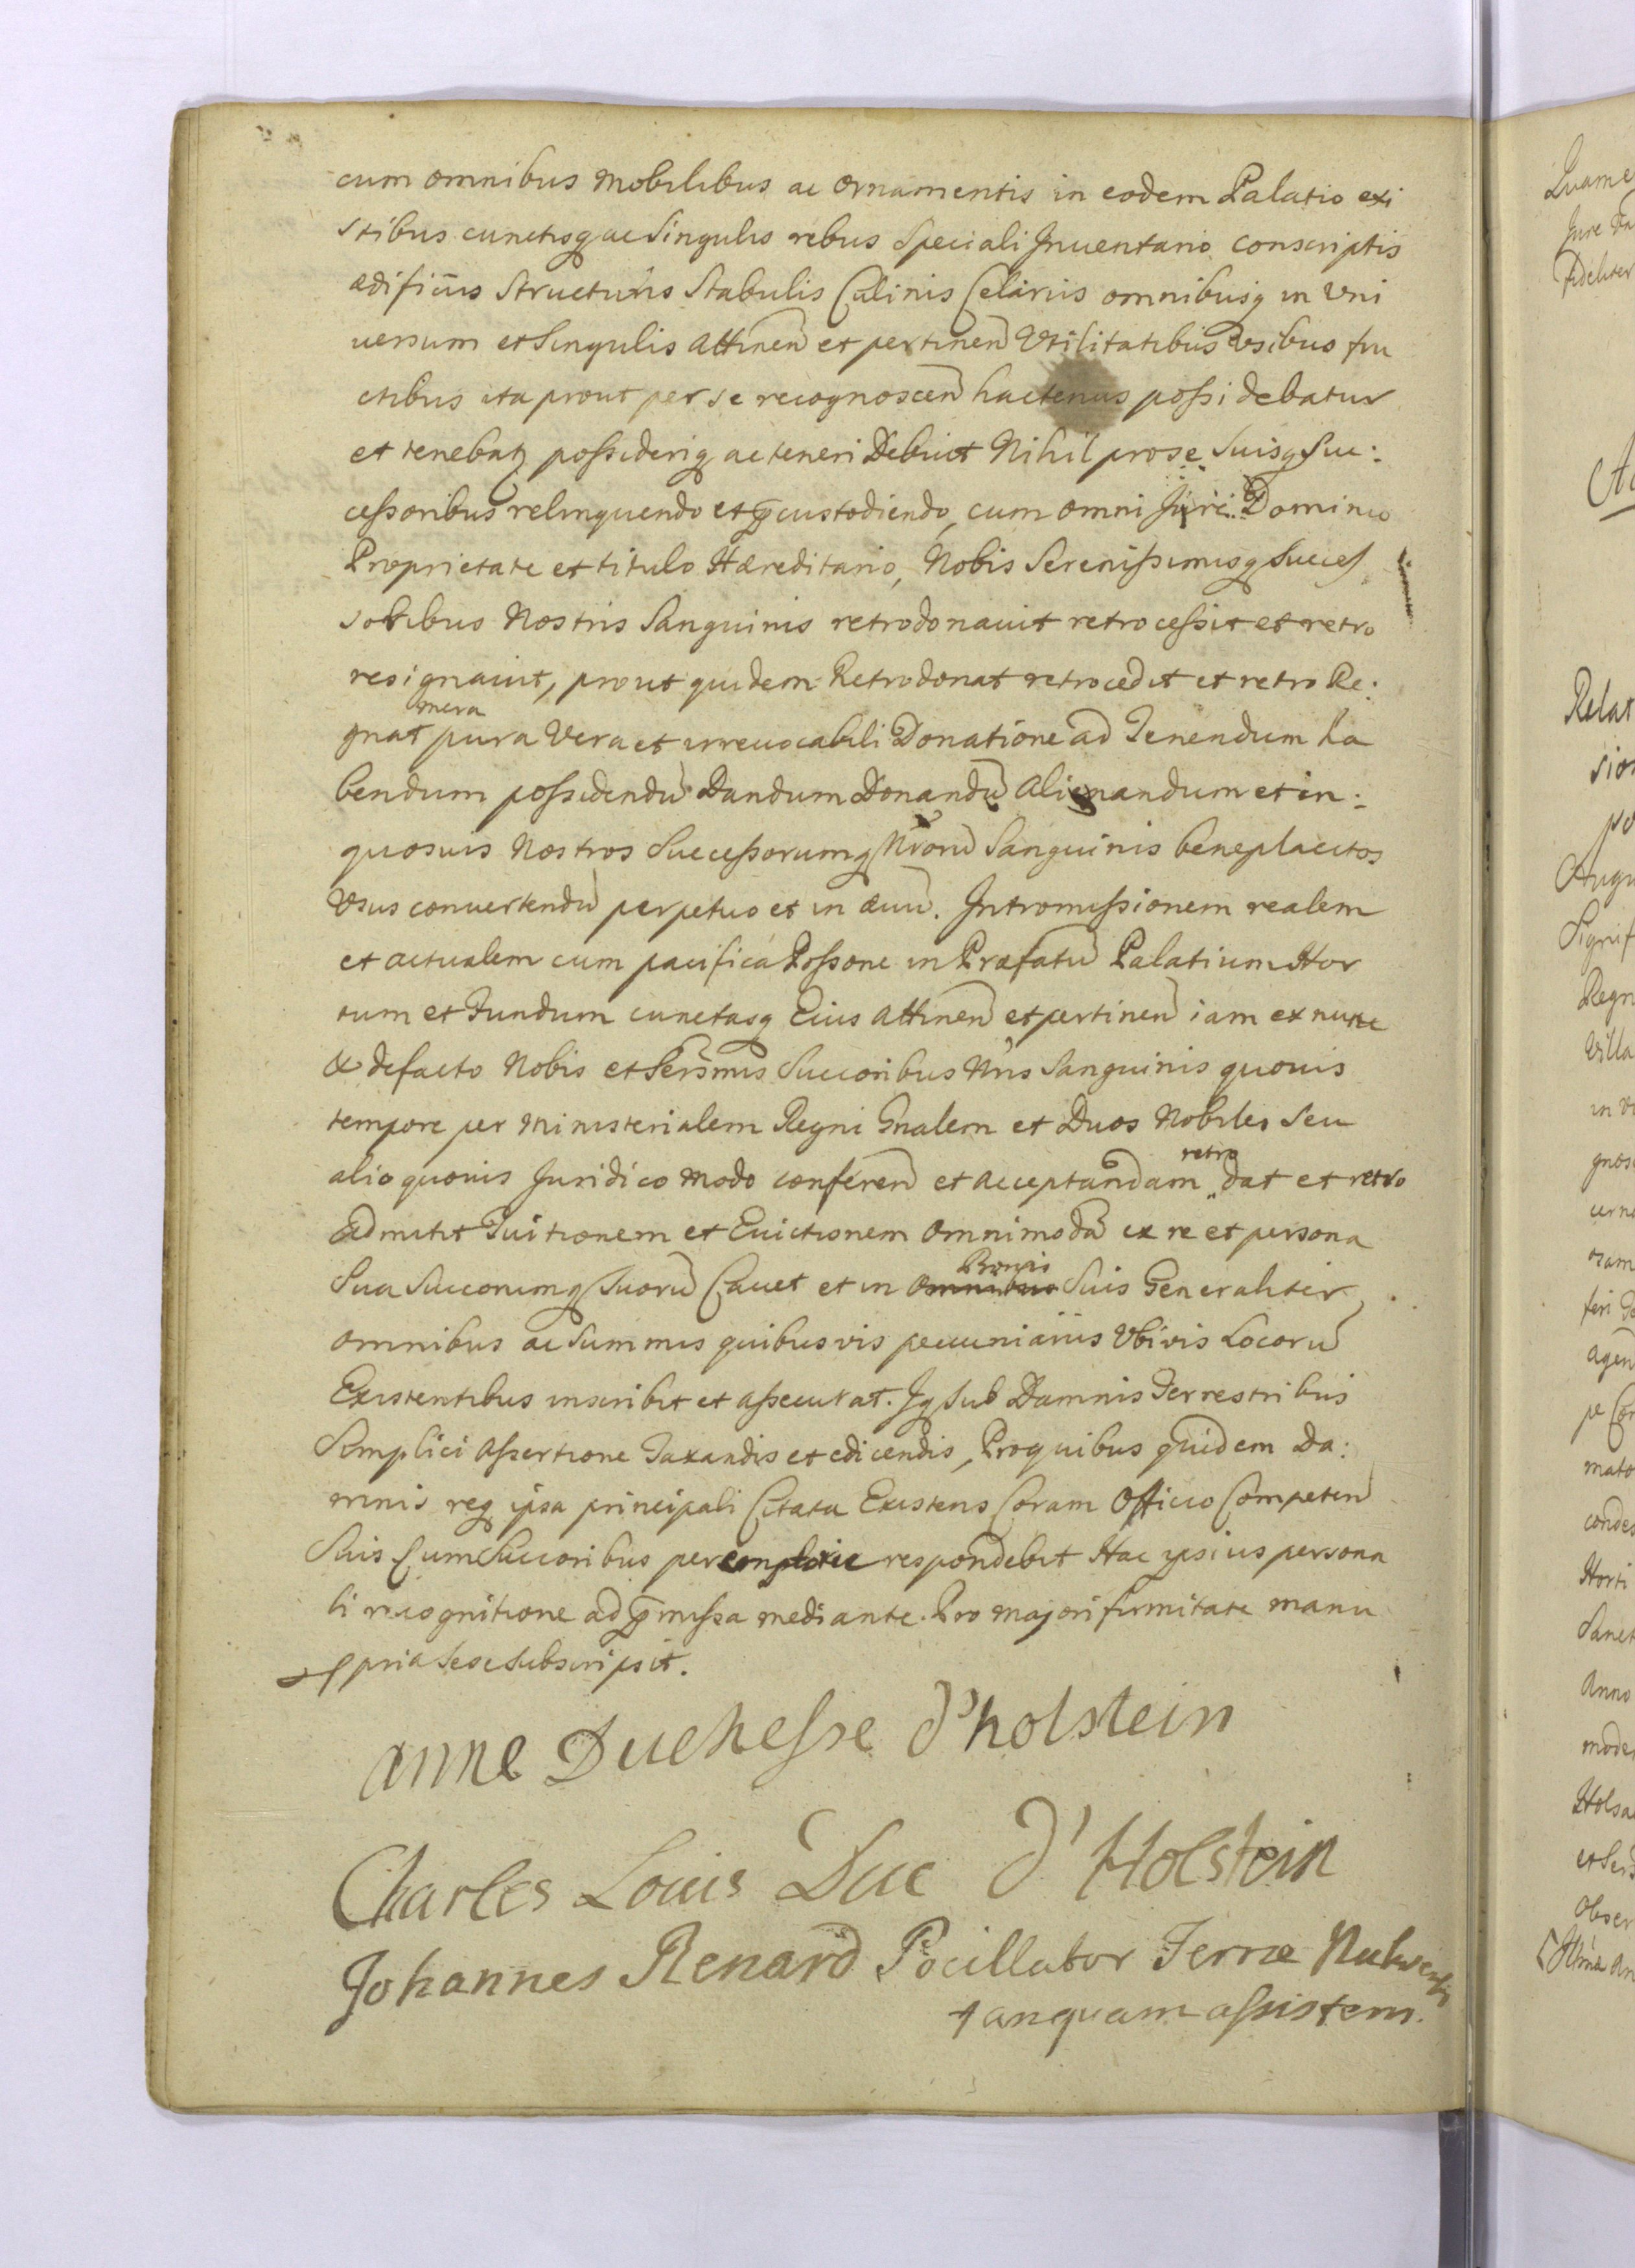 cum omnibus Mobilibus ac ornamentis in eodem Palatio exi
stibus cunctisq ac Singulis rebus Speciali Inuentario conscriptis
ædificiis Structuris Stabulis Culinis Celariis omnibusq in Vni
uersum et Singulis Attinen et pertinen Vtilitatibus Vsibus fru
ctibus ita prout per se recognoscen hactenus possidebatur
et tenebatq possideriq ac teneri Debuit Nihil pro se Suisq Suc:
cessoribus relinquendo et p̄custodiendo, cum omni Jure Dominio
Proprietate et titulo Hæreditario, Nobis Serenissimisq Succes
soribus Nostris Sanguinis retrodonauit retrocessit et retro
resignauit, prout quidem Retrodonat retrocedit et retro Re:
mera
gnat pura Vera et irreuocabili Donatione ad Tenendum ha
bendum possidendū Dandum Donandū Alienandum et in:
quosuis Nostros Successorumq Nrorū Sanguinis beneplacitos
Vsus conuertendū perpetuo et in æuū. Intromissionem realem
et actualem cum pacifica Possone in Præfatū Palatium Hor
tum et Fundum cunctasq Eius Attinen et pertinen iam ex nunc
& defacto Nobis et Serūmis Succoribus Nris Sanguinis quouis
tempore per Ministerialem Regni Gnalem et Duos Nobiles Seu
alio quouis Juridico Modo conferen et acceptandam retro dat et retro
Admitit Tuitionem et Euictionem omnimodā ex re et persona
Sua Succorumq Suorū Cauet et in Bonis omnibus Suis Generaliter
omnibus ac Summis quibusvis pecuniariis Vbivis Locorū
Existentibus inscribit et assecurat. Iq Sub Damnis Terrestribus
Simplici Assertione Taxandis et edicendis, Pro quibus quidem Da:
mnis req ipsa principali Citata Existens Coram Officio Competen
Suis Cum Succoribus peremptorie respondebit Hac ipsius persona
li recognitione ad p̄missa mediante. Pro majori firmitate manu
ppria Sese Subscripsit.
anne Duchesse d'holstein
Charles Louis Duc d'Holstein
Johannes Renard Pocillator Terræ
tanquam assistens.